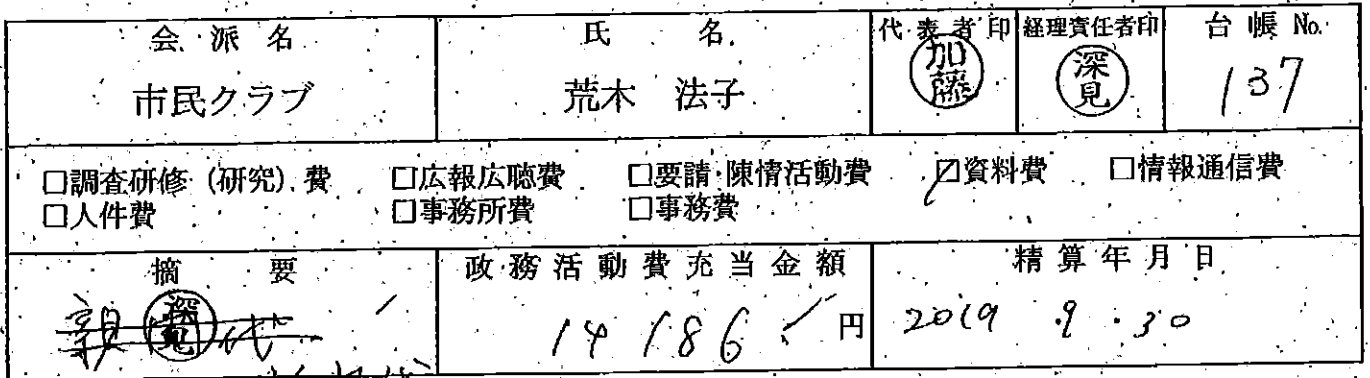 会派名 氏名 代表者印 経理責任者印 台帳No.
市民クラブ 荒木 法子 加藤 深見 137
□調査研修(研究)費 □広報広聴費 □要請・陳情活動費 ☑資料費 □情報通信費
□人件費 □事務所費 □事務費
摘要 政務活動費充当金額 精算年月日
深見 14186円 2019.9.30